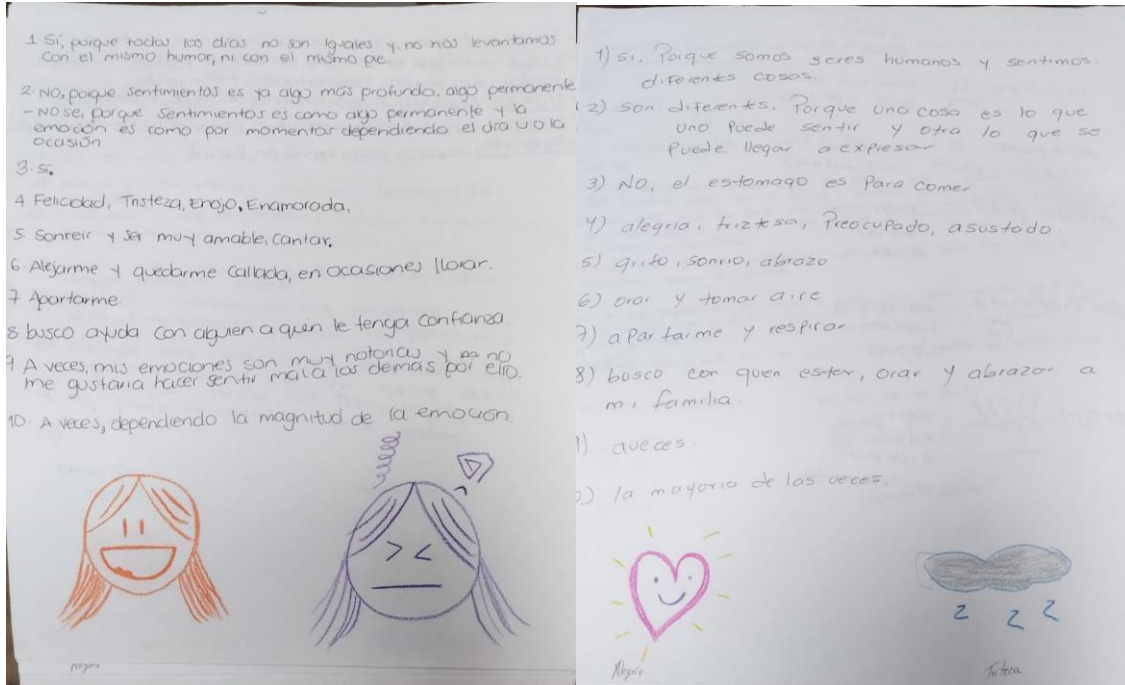 1. Si, porque todos los dias no son iguales y no nos levantamos
con el mismo humor, ni con el mismo pe.
2. NO, porque sentimientos es ya algo más profundo, algo permanente
- NO se, porque sentimientos es como algo permanente y la
emoción es como por momentos dependiendo el dia u o la
ocasión
3. Si.
4 Felicidad, Tristeza, Enojo, Enamorada,
5. Sonreir y ser muy amable, cantar.
6. Alejarme y quedarme callada, en ocasiones llorar.
7 Apartarme.
8 busco ayuda con alguien a quien le tenga confianza.
9 A veces, mis emociones son muy notorias y no
me gustaria hacer sentir mal a los demas por ello.
10. A veces, dependiendo la magnitud de la emoción
Alegria
1) si, Porque somos seres humanos y sentimos
diferentes cosas.
2) son diferentes. Porque una cosa es lo que
uno puede sentir y otra lo que se
puede llegar a expresar
3) NO, el estomago es Para comer
4) alegria, triztesa, Preocupado, asustado.
5) grito, sonrio, abrazo
6) orar y tomar aire
7) apartarme y respirar
8) busco con quen ester, orar y abrazar a
mi familia.
9) aveces.
0) la mayoria de las veces.
Alegria
Tristeza